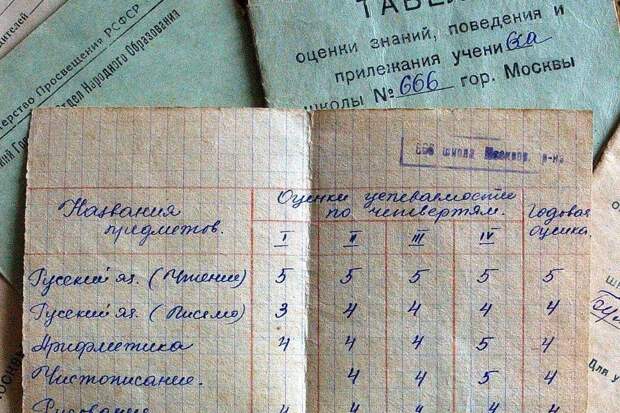 ТАБЕЛ
оценки знаний, поведения и
прилежания учени ка
школы № 666 гор. Москвы
Просвещения РСФСР
Отдел Народного Образования
школа р-на
Названия предметов.
Оценки успеваемости по четвертям.
Годовая оценка.
I II III IV
Русский яз. (Чтение) 5 5 5 5 5
Русский яз. (Письмо) 3 4 4 4 4
Арифметика 4 4 4 5 4
Чистописание. 4 4 5 4
Рисование 4 4 4 4 4
Для у